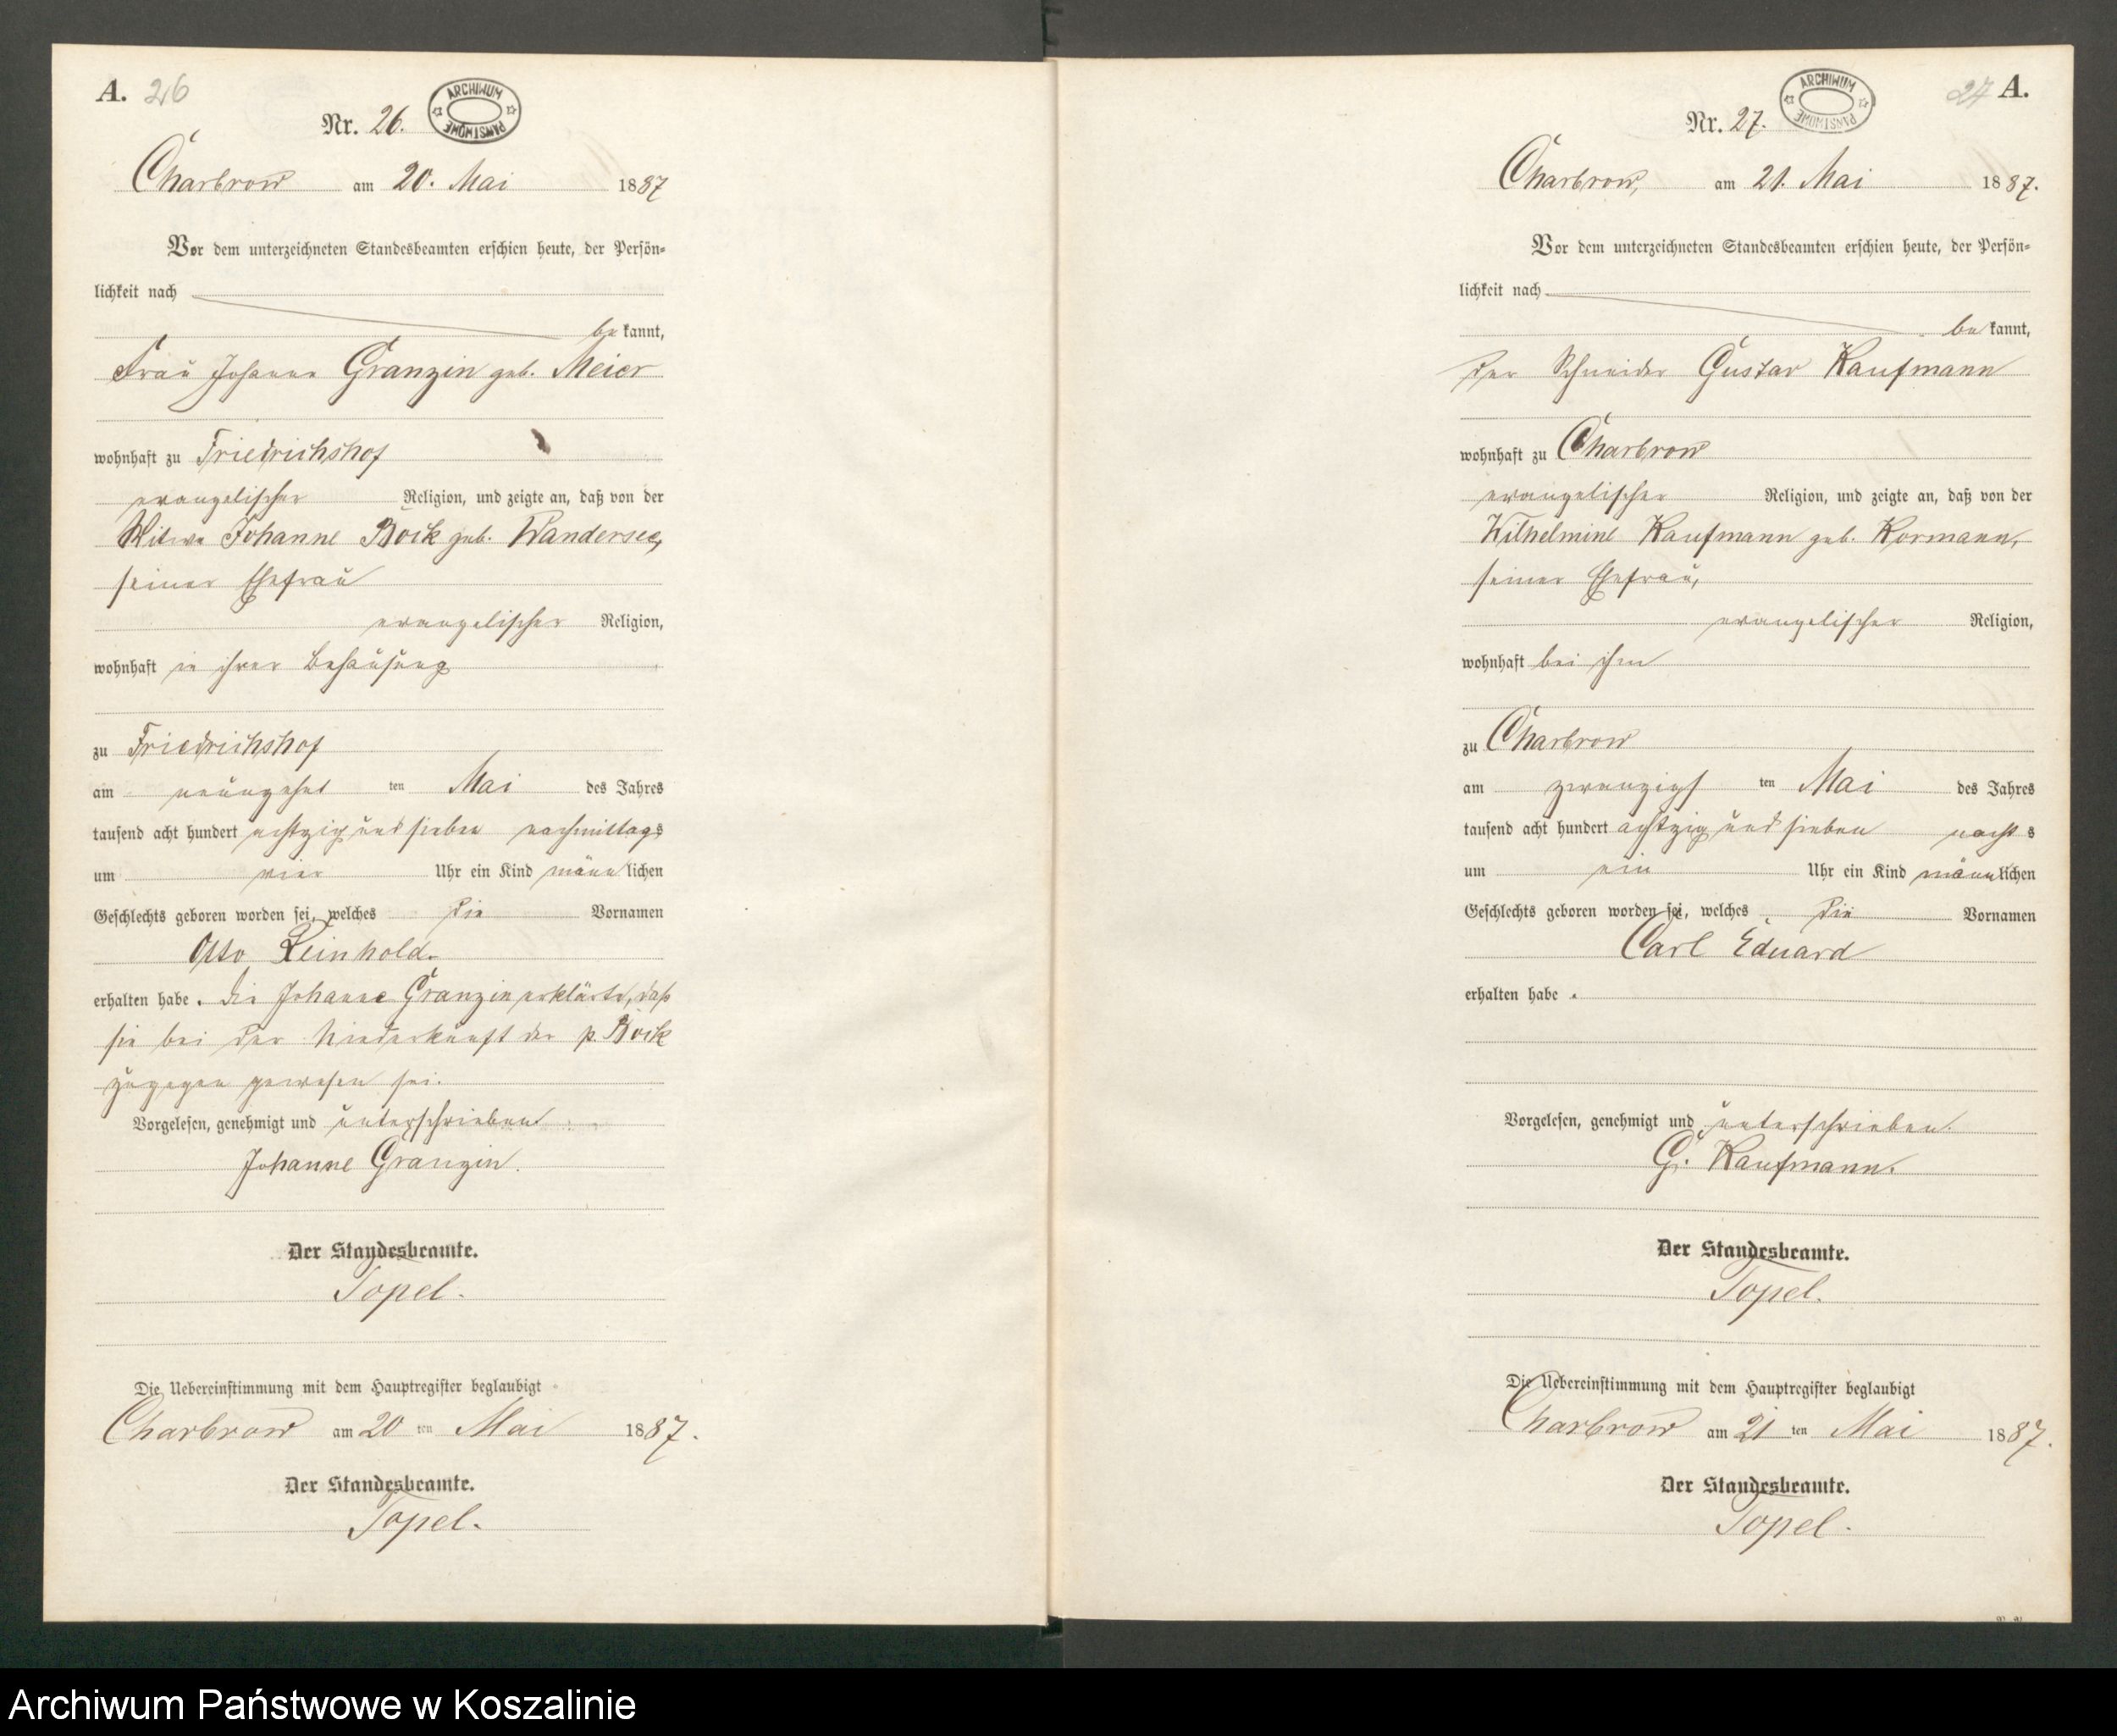 A. 26
Nr. 26.
ARCHIWUM
PAŃSTWOWE
Charbrow am 20. Mai 1887
Vor dem unterzeichneten Standesbeamten erschien heute, der Persön-
lichkeit nach
be kannt,
Frau Johanne Granzin geb. Meier
wohnhaft zu Friedrichshof
evangelischer Religion, und zeigte an, daß von der
Witwe Johanne Bock geb. Wandersee,
seiner Ehefrau
evangelischer Religion,
wohnhaft in ihrer Behausung
zu Friedrichshof
am neunzehnt ten Mai des Jahres
tausend acht hundert achtzig und sieben nachmittags
um vier Uhr ein Kind männlichen
Geschlechts geboren worden sei, welches die Vornamen
Otto Reinhold.
erhalten habe. Die Johanne Granzin erklärte, daß
sie bei der Niederkunft der p. Bock
zugegen gewesen sei.
Vorgelesen, genehmigt und unterschrieben
Johanne Granzin.
Der Standesbeamte.
Topel.
Die Uebereinstimmung mit dem Hauptregister beglaubigt
Charbrow am 20 ten Mai 1887.
Der Standesbeamte.
Topel.
27 A.
Nr. 27.
ARCHIWUM
PAŃSTWOWE
Charbrow, am 21. Mai 1887.
Vor dem unterzeichneten Standesbeamten erschien heute, der Persön-
lichkeit nach
be kannt,
der Schneider Gustav Kaufmann
wohnhaft zu Charbrow
evangelischer Religion, und zeigte an, daß von der
Wilhelmine Kaufmann geb. Kormann,
seiner Ehefrau,
evangelischer Religion,
wohnhaft bei ihm
zu Charbrow
am zwanzigs ten Mai des Jahres
tausend acht hundert achtzig und sieben nachts
um ein Uhr ein Kind männlichen
Geschlechts geboren worden sei, welches die Vornamen
Carl Eduard
erhalten habe.
Vorgelesen, genehmigt und unterschrieben.
G. Kaufmann.
Der Standesbeamte.
Topel.
Die Uebereinstimmung mit dem Hauptregister beglaubigt
Charbrow am 21 ten Mai 1887.
Der Standesbeamte.
Topel.
Archiwum Państwowe w Koszalinie